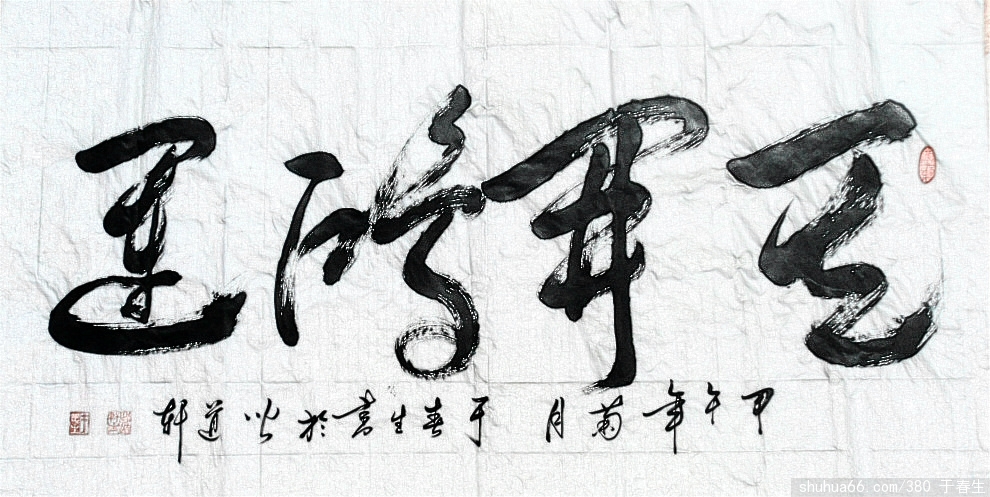 天開鴻運
甲午年菊月 于春生書於道軒
shuhua66.com/380 于春生